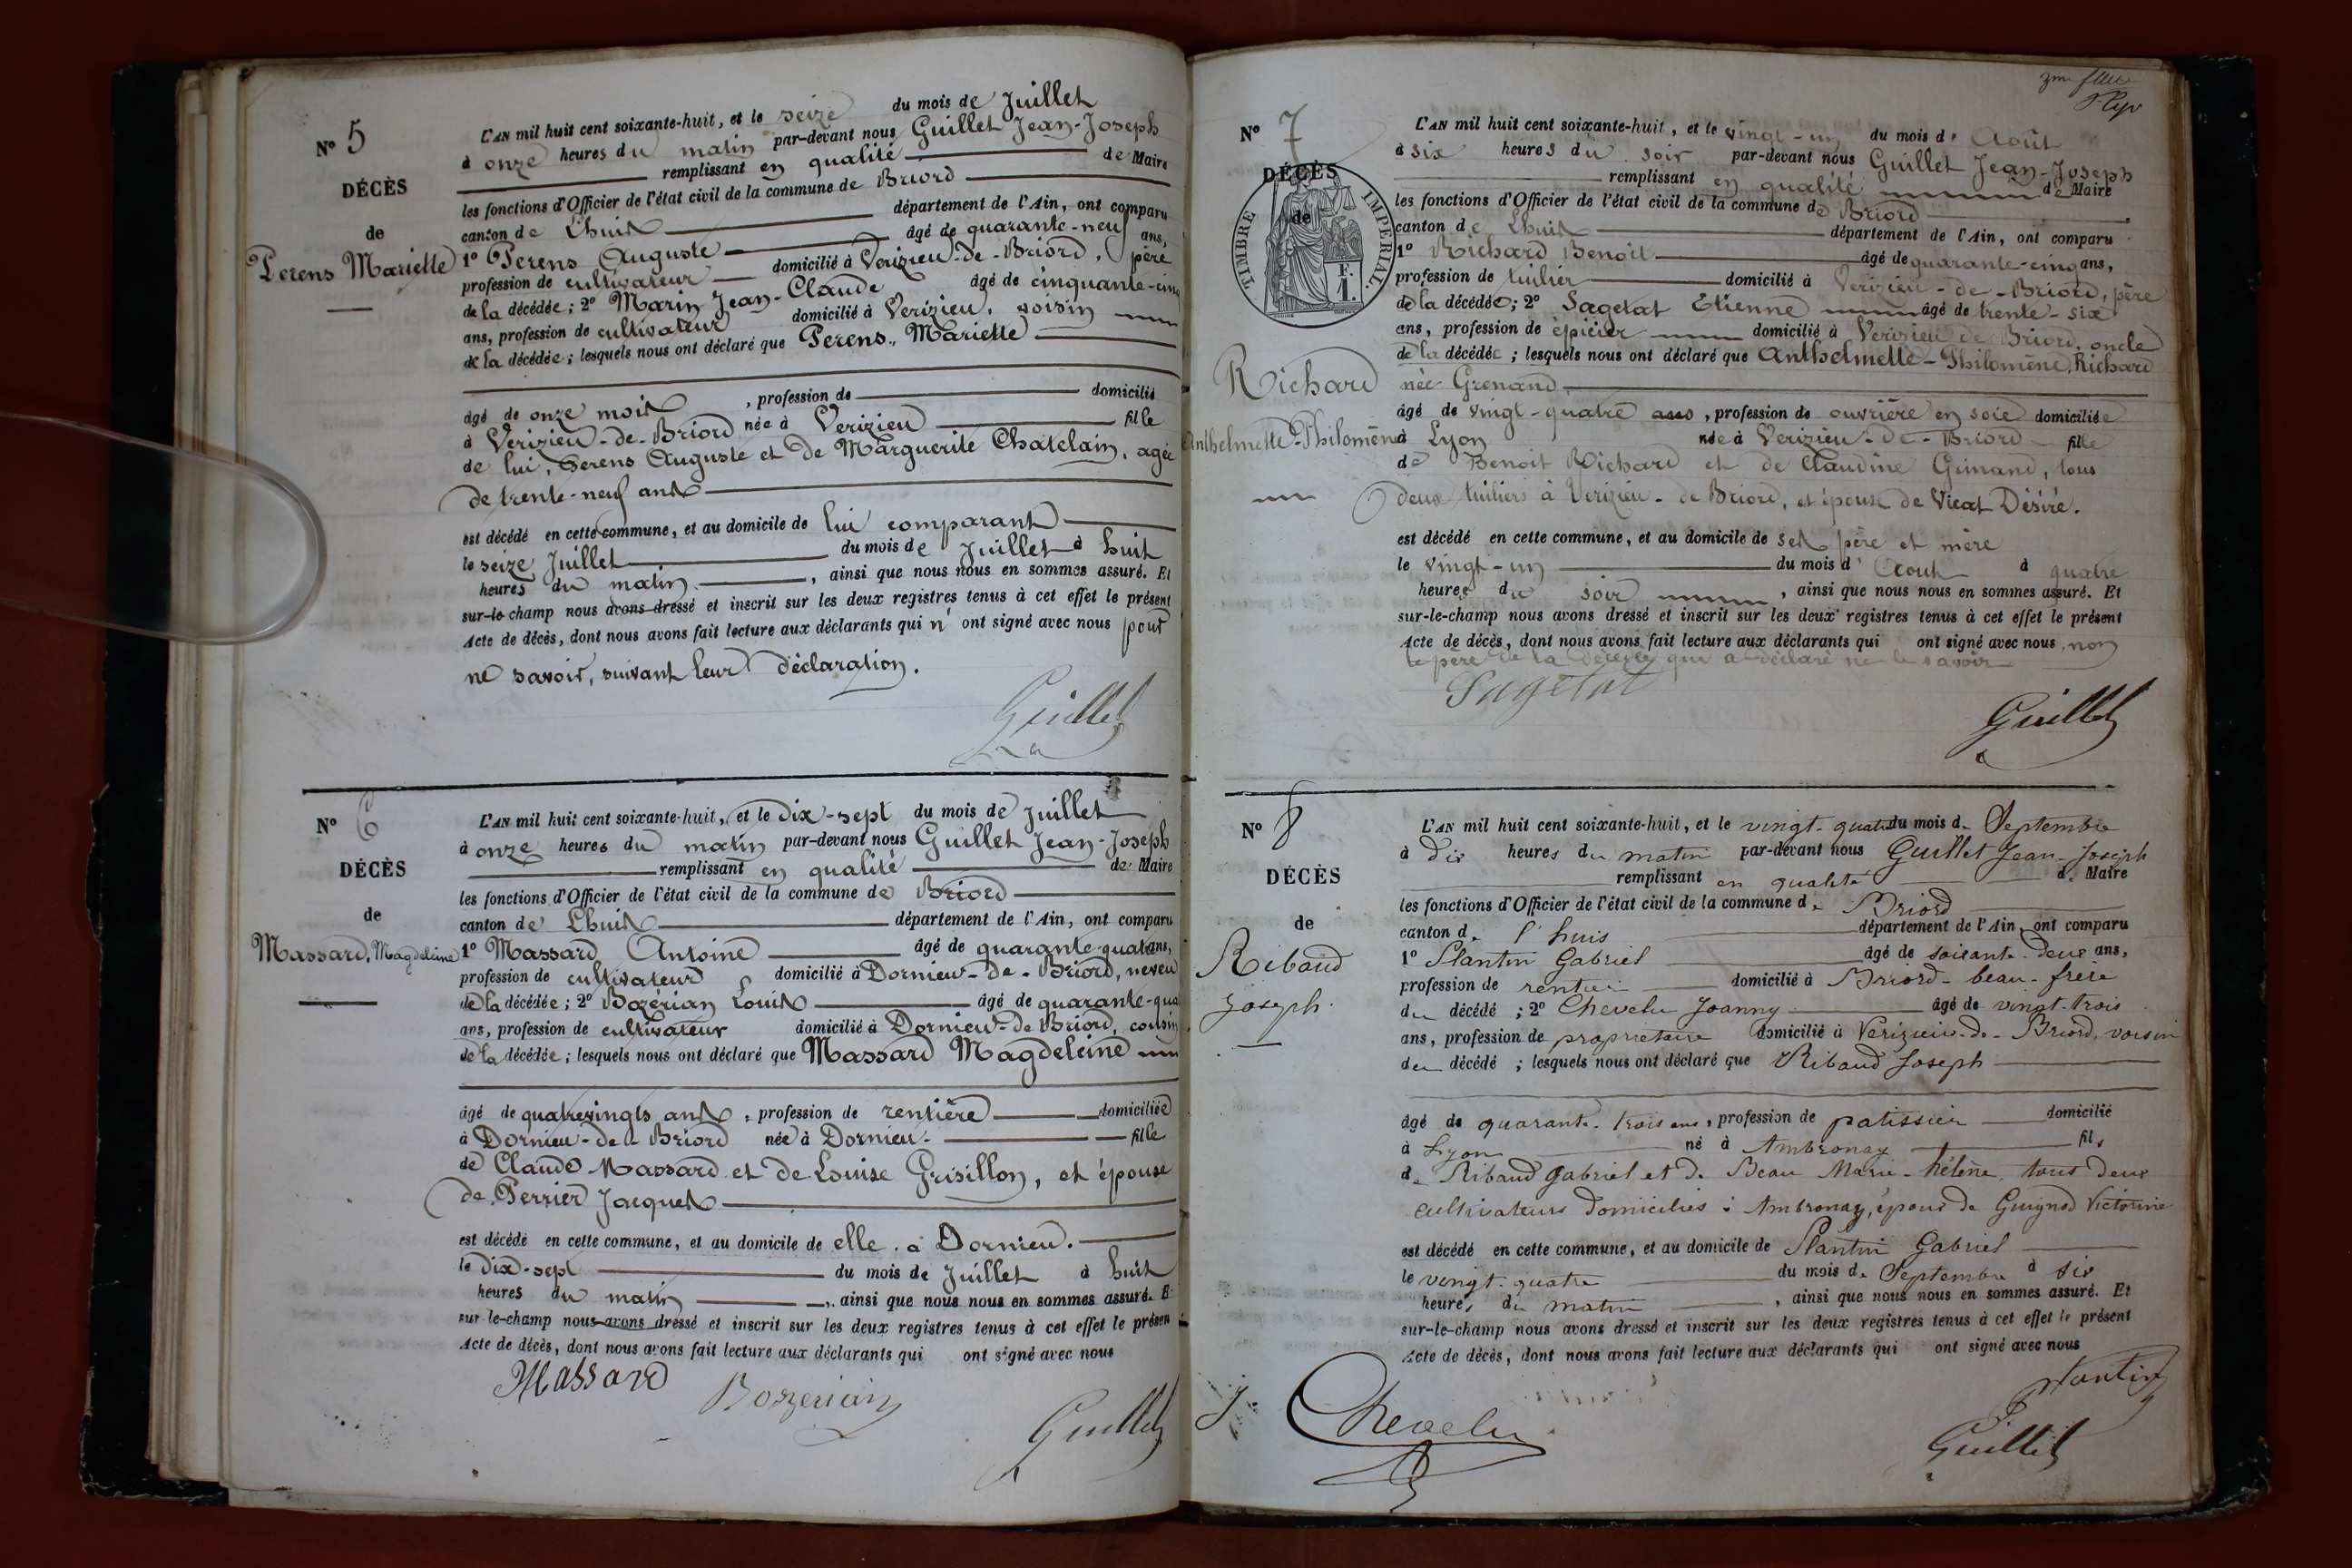 N° 5
DÉCÈS
de
Perens Mariette
L'AN mil huit cent soixante-huit, et le seize du mois de Juillet
à onze heures du matin par-devant nous Guillet Jean-Joseph
remplissant en qualité de Maire
les fonctions d'Officier de l'état civil de la commune de Briord
canton de Lhuis département de l'Ain, ont comparu
1° Perens Auguste âgé de quarante-neuf ans,
profession de cultivateur domicilié à Verizieu-de-Briord, père
de la décédée; 2° Marin Jean-Claude âgé de cinquante-cinq
ans, profession de cultivateur domicilié à Verizieu, voisin
de la décédée; lesquels nous ont déclaré que Perens, Mariette
âgé de onze mois, profession de domicilié
à Verizieu-de-Briord née à Verizieu fille
de lui, Perens Auguste et de Marguerite Chatelain, agée
de trente-neuf ans
est décédé en cette commune, et au domicile de lui comparant
le seize Juillet du mois de Juillet à huit
heures du matin, ainsi que nous nous en sommes assuré. Et
sur-le-champ nous avons dressé et inscrit sur les deux registres tenus à cet effet le présent
Acte de décès, dont nous avons fait lecture aux déclarants qui n'ont signé avec nous pour
ne savoir, suivant leur déclaration.
Guillet
N° 6
DÉCÈS
de
Massard, Magdeleine
L'AN mil huit cent soixante-huit, et le Dix-sept du mois de Juillet
à onze heures du matin par-devant nous Guillet Jean-Joseph
remplissant en qualité de Maire
les fonctions d'Officier de l'état civil de la commune de Briord
canton de Lhuis département de l'Ain, ont comparu
1° Massard Antoine âgé de quarante-quatre ans,
profession de cultivateur domicilié à Dornieu-de-Briord, neveu
de la décédée; 2° Bozérian Louis âgé de quarante-qua
ans, profession de cultivateur domicilié à Dornieu-de Briord, cousin
de la décédée; lesquels nous ont déclaré que Massard Magdeleine
âgé de quatrevingts ans, profession de rentière domiciliée
à Dornieu-de-Briord née à Dornieu fille
de Claude Massard et de Louise Grisillon, et épouse
de Perrier Jacques
est décédé en cette commune, et au domicile de elle. à Dornieu.
le Dix-sept du mois de Juillet à huit
heures du matin, ainsi que nous nous en sommes assuré. E
sur-le-champ nous avons dressé et inscrit sur les deux registres tenus à cet effet le présen
Acte de décès, dont nous avons fait lecture aux déclarants qui ont signé avec nous
Massard
Bozerian
Guillet
N° 7
DÉCÈS
de
TIMBRE IMPÉRIAL
Richard
Anthelmette-Philomène
L'AN mil huit cent soixante-huit, et le vingt-un du mois d'Août
à six heures du soir par-devant nous Guillet Jean-Joseph
remplissant en qualité de Maire
les fonctions d'Officier de l'état civil de la commune de Briord
canton de Lhuis département de l'Ain, ont comparu
1° Richard Benoit âgé de quarante-cinq ans,
profession de tuilier domicilié à Verizieu-de-Briord, père
de la décédée; 2° Sagetat Etienne âgé de trente-six
ans, profession de épicier domicilié à Verizieu de Briord, oncle
de la décédée; lesquels nous ont déclaré que Anthelmette-Philomène, Richard
née Grenand
âgé de vingt-quatre ans, profession de ouvrière en soie domiciliée
à Lyon née à Verizieu-de-Briord fille
de Benoit Richard et de Claudine Grinand, tous
deux tuiliers à Verizieu-de Briord, et épouse de Vicat Désiré.
est décédé en cette commune, et au domicile de ses père et mère
le vingt-un du mois d'Août à quatre
heures du soir, ainsi que nous nous en sommes assuré. Et
sur-le-champ nous avons dressé et inscrit sur les deux registres tenus à cet effet le présent
Acte de décès, dont nous avons fait lecture aux déclarants qui ont signé avec nous, non
le père de la décédée qui a déclaré ne le savoir
Sagetat
Guillet
N° 8
DÉCÈS
de
Ribaud
Joseph
L'AN mil huit cent soixante-huit, et le vingt-quatre du mois de Septembre
à dix heures du matin par-devant nous Guillet Jean-Joseph
remplissant en qualité de Maire
les fonctions d'Officier de l'état civil de la commune de Briord
canton de l'huis département de l'Ain, ont comparu
1° Plantin Gabriel âgé de soixante-deux ans,
profession de rentier domicilié à Briord-beau-frère
du décédé; 2° Chevelu Joanny âgé de vingt-trois
ans, profession de propriétaire domicilié à Verizieu-de-Briord, voisin
du décédé; lesquels nous ont déclaré que Ribaud Joseph
âgé de quarante-trois ans, profession de patissier domicilié
à Lyon né à Ambronay fils
de Ribaud Gabriel et de Beau Marie-hélène, tous deux
cultivateurs domiciliés à Ambronay, époux de Guignod Victorine
est décédé en cette commune, et au domicile de Plantin Gabriel
le vingt-quatre du mois de Septembre à six
heures du matin, ainsi que nous nous en sommes assuré. Et
sur-le-champ nous avons dressé et inscrit sur les deux registres tenus à cet effet le présent
Acte de décès, dont nous avons fait lecture aux déclarants qui ont signé avec nous
Plantin
J. Chevelu
Guillet